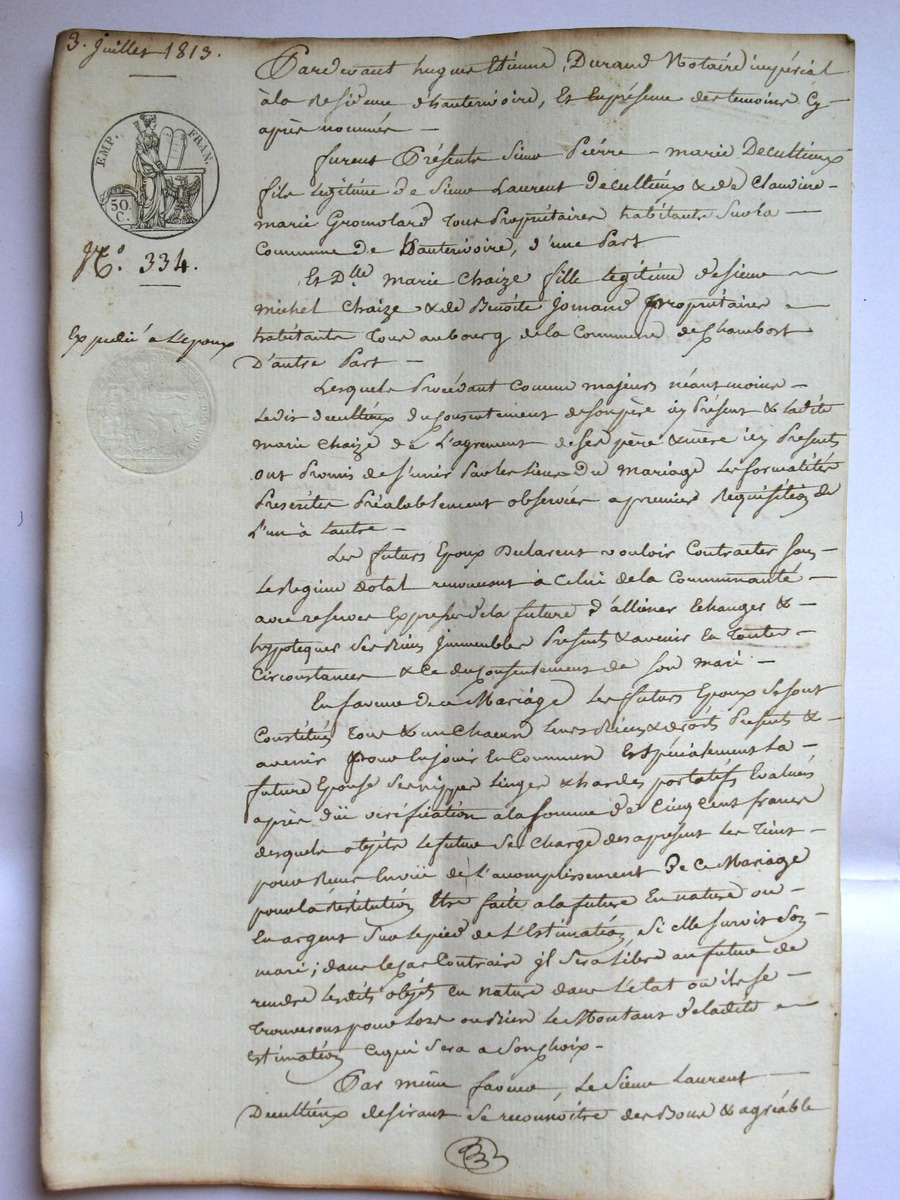 3. Juillet 1813.
EMP. FRAN.
50.
C.
N.º 334.
Expedié à l'epoux
Pardevant hugues Etienne Durand Notaire impérial
à la Residence d'hauterivoire, Et En présence des temoins Cy-
après nommés —
furent Présents Sieur Pierre - marie Decultieux
fils legitime de Sieur Laurent Decultieux & de Claudine-
marie Gromolard Tous Propriétaires habitants Sur la —
Commune de hauterivoire, d'une Part
Et Dlle marie Chaize fille legitime de sieur —
michel Chaize & de Benoite Jomand propriétaires —
habitants Tous au bourg de la Commune de Chambost
D'autre Part —
Lesquels Procédant Comme majeurs néantmoins —
Ledit Decultieux du Consentement de son père icy Présent & ladite
marie Chaize de L'agrément de ses père & mère icy Presents
ont Promis de s'unir Par les Liens du mariage Les formalités
Prescrites Préalablement observées a premiere Requisition de
L'un à l'autre —
Les futurs Epoux Declarent vouloir Contracter Sous
Le Regime dotal renoncent à Celui de la Communauté —
avec reserve Expresse de la future d'alliéner Echanger & —
hypotequer Ses Biens Jmmeubles Presents & avenir En Toutes —
Circonstances & Ce du Consentement de Son mari —
En faveur de ce Mariage Les futurs Epoux Se sont
Constitués Tous & un Chacun Leurs Biens & droits Presents &
avenir Pour En jouir En Commun Et Spécialement La —
future Epouse Ses nippes Linges & hardes portatifs Evalués
après düe vérification a la Somme de Cinq Cent francs
desquels objets Le futur Se Charge des apresent Les Tient —
pour Reçus de L'accomplissement De Ce Mariage
pour la restitution Etre faite a la future En nature ou —
En argent Sur le pied de L'Estimation Si elle Survit Son —
mari; dans le Cas Contraire jl Sera Libre au futur de
rendre Lesdits objets En nature dans L'état où ils se —
Trouveront pour Lors ou Bien Le Montant De ladite —
estimation Ce qui Sera a Son choix. —
Par même faveur, Le Sieur Laurent —
Decultieux desirant Se reconnoitre des Bons & agréable